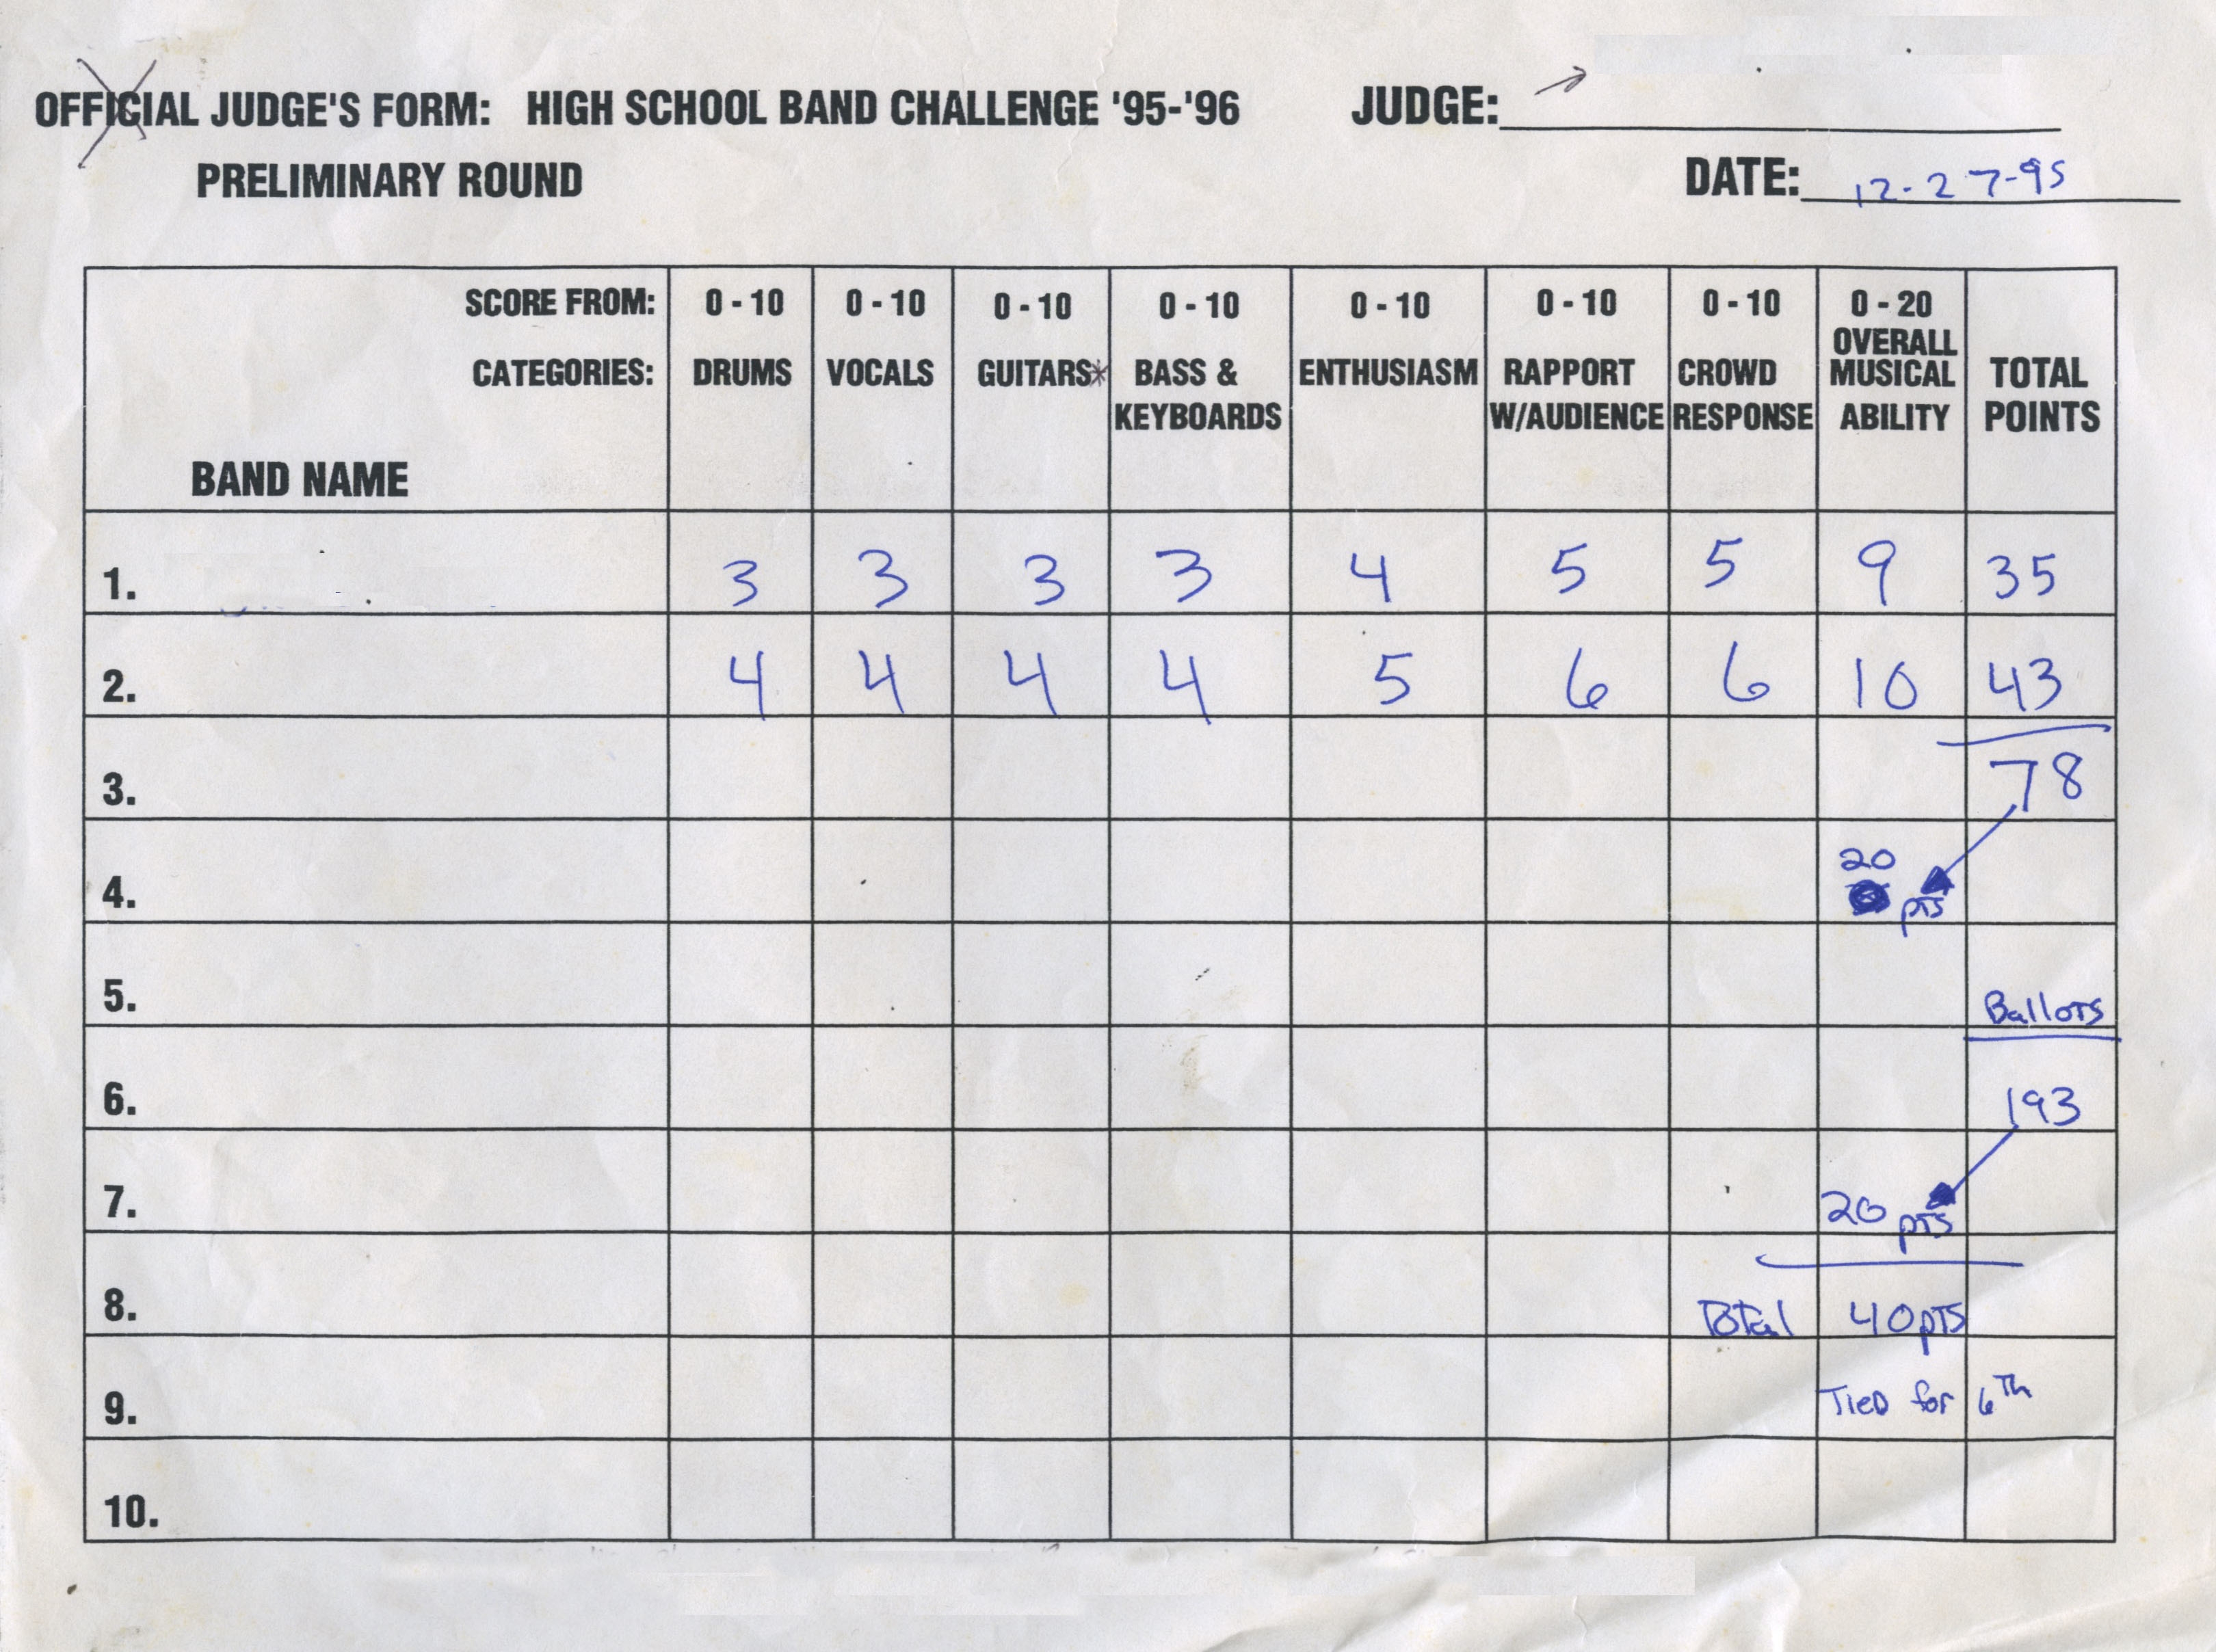 OFFICIAL JUDGE'S FORM: HIGH SCHOOL BAND CHALLENGE '95-'96 JUDGE:
PRELIMINARY ROUND DATE: 12-27-95
SCORE FROM: 0 - 10 0 - 10 0 - 10 0 - 10 0 - 10 0 - 10 0 - 10 0 - 20
OVERALL
CATEGORIES: DRUMS VOCALS GUITARS* BASS & ENTHUSIASM RAPPORT CROWD MUSICAL TOTAL
KEYBOARDS W/AUDIENCE RESPONSE ABILITY POINTS
BAND NAME
1. 3 3 3 3 4 5 5 9 35
2. 4 4 4 4 5 6 6 10 43
3. 78
20
4. pts
5. Ballots
6. 193
7. 20 pts
8. Total 40 pts
9. Tied for 6th
10.